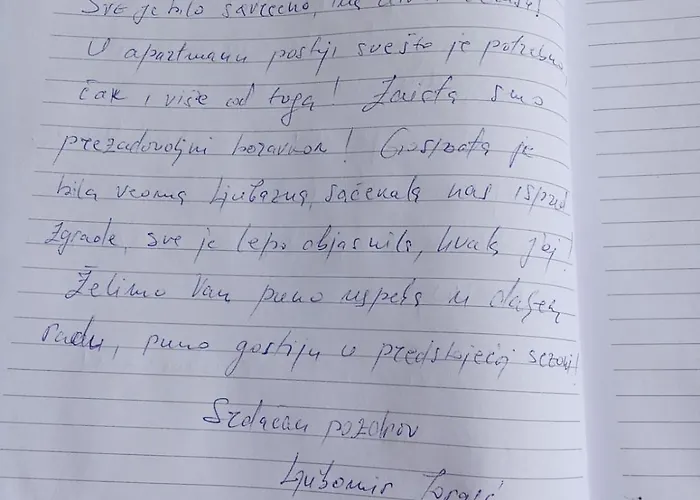 Sve je bilo savršeno,
U apartmanu postoji sve što je potrebno,
čak i više od toga! Zaista smo
prezadovoljni boravkom! Gospođa je
bila veoma ljubazna, sačekala nas ispred
zgrade, sve je lepo objasnila, hvala joj!
Želimo Vam puno uspeha u daljem
radu, puno gostiju u predstojećoj sezoni!
Srdačan pozdrav
Ljubomir